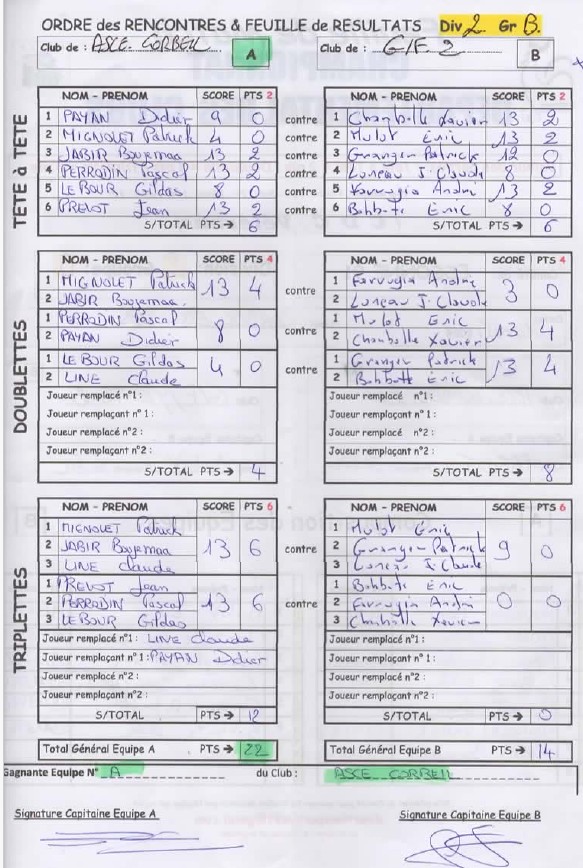 ORDRE des RENCONTRES & FEUILLE de RESULTATS Div 2 Gr B.
Club de : ASCE. CORBEIL A Club de : GIF. 2 B
TETE à TETE
NOM - PRENOM SCORE PTS 2 NOM - PRENOM SCORE PTS 2
1 PAYAN Didier 9 0 contre 1 Chanbolle Xavier 13 2
2 MIGNOLET Patrick 4 0 contre 2 Mulot Eric 13 2
3 JABIR Boujemaa 13 2 contre 3 Granger Patrick 12 0
4 PERRODIN Pascal 13 2 contre 4 Luneau J. Claude 8 0
5 LE BOUR Gildas 8 0 contre 5 Farrugia André 13 2
6 PREVOT Jean 13 2 contre 6 Bohbott Eric 8 0
S/TOTAL PTS → 6 S/TOTAL PTS → 6
DOUBLETTES
NOM - PRENOM SCORE PTS 4 NOM - PRENOM SCORE PTS 4
1 MIGNOLET Patrick 13 4 contre 1 Farrugia André 3 0
2 JABIR Boujemaa. 2 Luneau J Claude
1 PERRODIN Pascal 8 0 contre 1 Mulot Eric 13 4
2 PAYAN Didier 2 Chanbolle Xavier
1 LE BOUR Gildas 4 0 contre 1 Granger Patrick 13 4
2 LINE Claude 2 Bohbott Eric
Joueur remplacé n°1 : Joueur remplacé n°1 :
Joueur remplaçant n° 1 : Joueur remplaçant n° 1 :
Joueur remplacé n°2 : Joueur remplacé n°2 :
Joueur remplaçant n°2 : Joueur remplaçant n°2 :
S/TOTAL PTS → 4 S/TOTAL PTS → 8
TRIPLETTES
NOM - PRENOM SCORE PTS 6 NOM - PRENOM SCORE PTS 6
1 MIGNOLET Patrick 1 Mulot Eric
2 JABIR Boujemaa 13 6 contre 2 Granger Patrick 9 0
3 LINE Claude 3 Luneau J. Claude
1 PREVOT Jean 1 Bohbott Eric
2 PERRODIN Pascal 13 6 contre 2 Farrugia André 0 0
3 LE BOUR Gildas 3 Chanbolle Xavier
Joueur remplacé n°1 : LINE Claude Joueur remplacé n°1 :
Joueur remplaçant n° 1 : PAYAN Didier Joueur remplaçant n° 1 :
Joueur remplacé n°2 : Joueur remplacé n°2 :
Joueur remplaçant n°2 : Joueur remplaçant n°2 :
S/TOTAL PTS → 12 S/TOTAL PTS → 0
Total Général Equipe A PTS → 22 Total Général Equipe B PTS → 14
Gagnante Equipe N° A du Club : ASCE CORBEIL
Signature Capitaine Equipe A Signature Capitaine Equipe B